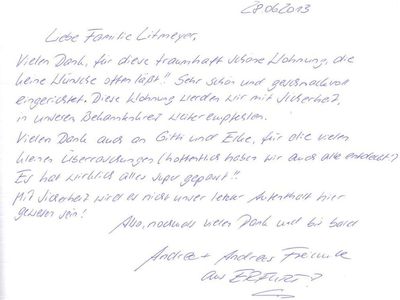 28.06.2013
Liebe Familie Litmeyer,
Vielen Dank, für diese traumhaft schöne Wohnung, die
keine Wünsche offen läßt!! Sehr schön und geschmackvoll
eingerichtet. Diese Wohnung werden wir mit Sicherheit,
in unseren Bekanntenkreis weiterempfehlen.
Vielen Dank auch an Gitti und Eike, für die vielen
kleinen Überraschungen (hoffentlich haben wir auch alle entdeckt?)
Es hat wirklich alles super gepasst!!
Mit Sicherheit wird es nicht unser letzter Aufenthalt hier
gewesen sein!
Also, nochmals vielen Dank und bis bald
Andrea + Andreas
aus ERFURT?